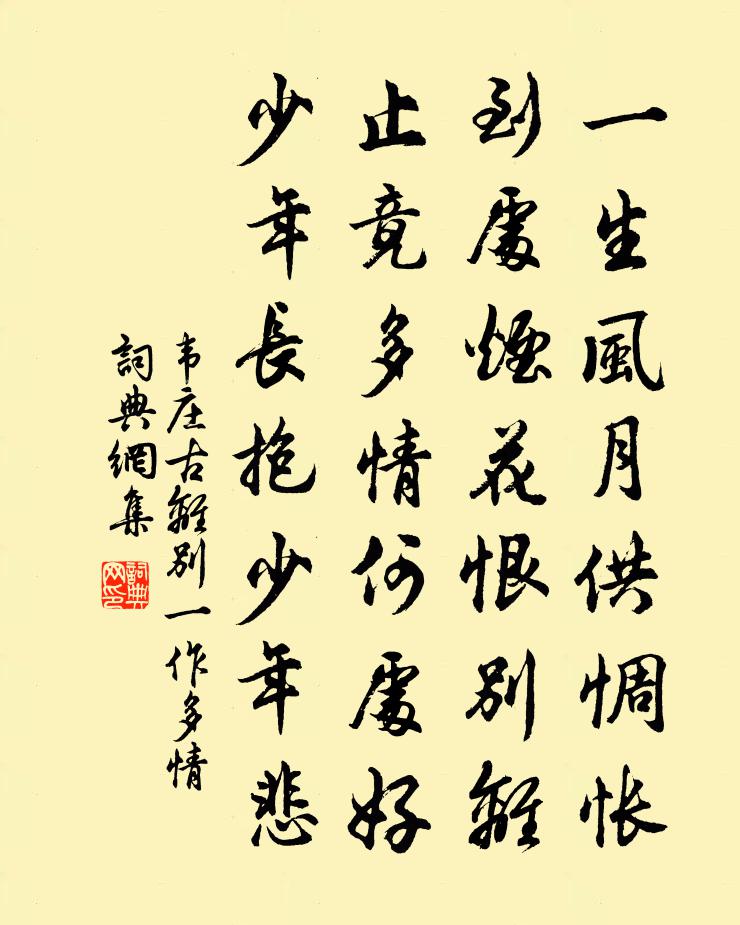 一生風月供惆悵
到處煙花恨別離
止竟多情何處好
少年長抱少年悲
韦庄古離别一作多情
詞典網集
詞典网印